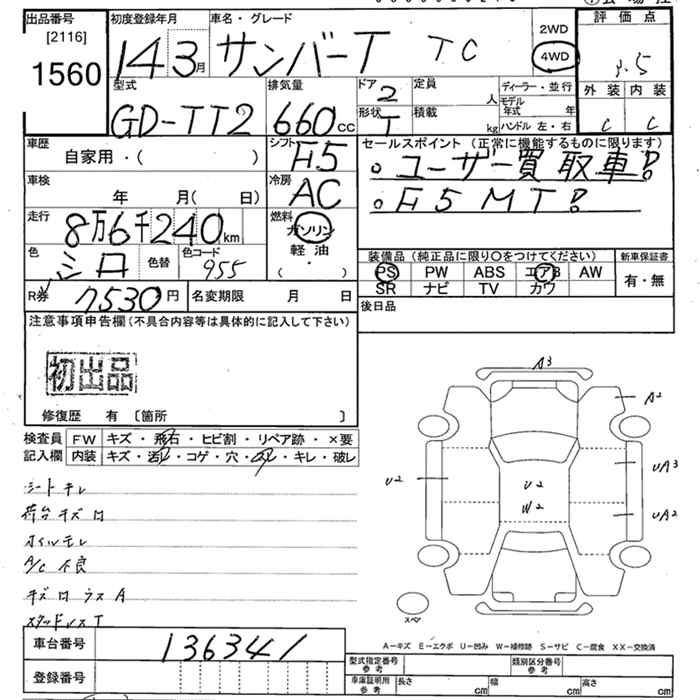 出品番号 [2116] 1560
初度登録年月 14年3月
車名・グレード サンバーT TC
2WD 4WD
評価点 3.5
外装 内装 C C
型式 GD-TT2
排気量 660cc
ドア 2
形状 T
定員 人
積載 kg
ディーラー・並行
モデル年式 年
ハンドル 左・右
車歴 自家用・( )
シフト F5
セールスポイント(正常に機能するものに限ります)
。ユーザー買取車!
。F5MT!
車検 年 月(日)
冷房 AC
走行 8万6千240km
燃料 ガソリン 軽油 ( ・ )
色 シロ 色替 色コード 955
装備品(純品に限り○をつけてください)
PS PW ABS エアB AW
SR ナビ TV カワ
新車保証書 有・無
R券 7530円 名変期限 月 日
後日品
注意事項申告欄(不具合内容等は具体的に記入して下さい)
初出品
修復歴 有 〔箇所 〕
検査員 FW キズ・飛石・ヒビ割・リペア跡・×要
記入欄 内装 キズ・汚レ・コゲ・穴・スレ・キレ・破レ
シートキレ
荷台キズロ
オイルモレ
A/C不良
スタッドレスT
A3
A2
UA3
U2
U2
W2
UA2
スペア
A-キズ E-エクボ U-凹み W-補修跡 S-サビ C-腐食 XX-交換済
車台番号 136341
登録番号
型式指定番号 参考 類別区分番号 参考
車庫証明用 参考 長さ cm 幅 cm 高さ cm